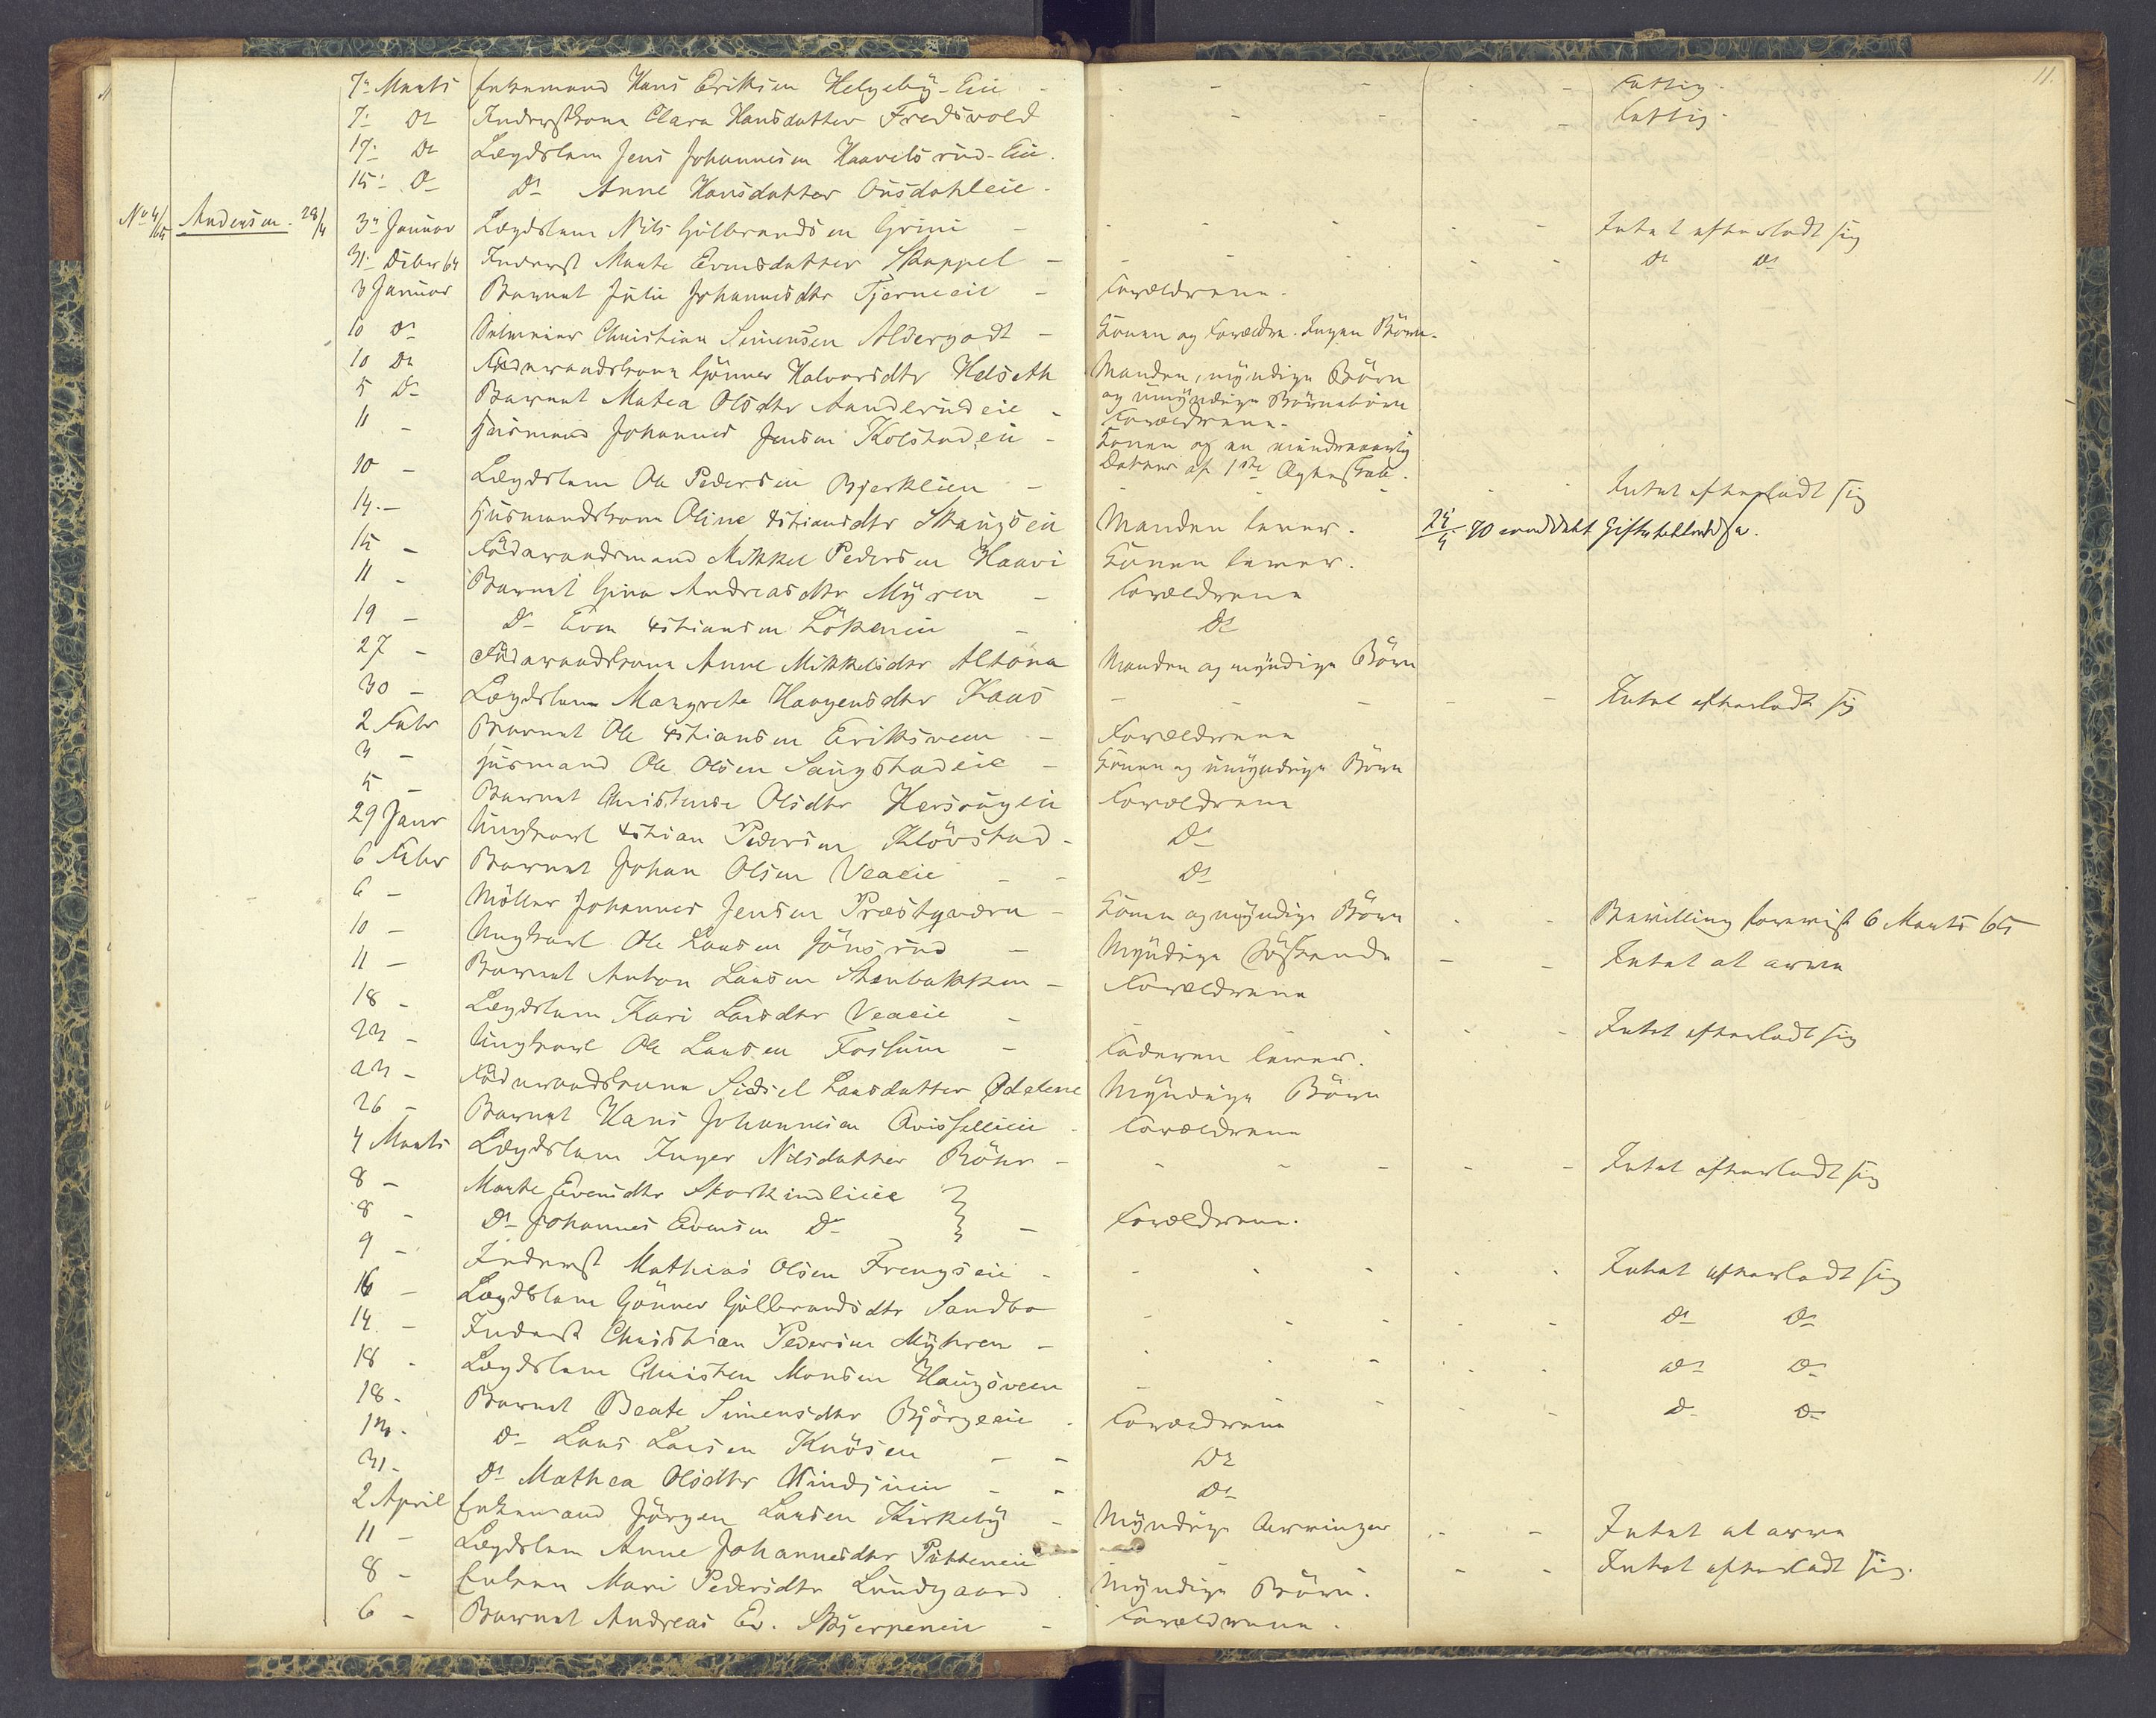 11.
7de Marts Enkemand Hans Eriksen Helgeby-Eie - - - - - - Fattig.
7de Do Inderstkone Clara Hansdatter Fredsvold - - - - - Fattig.
17de Do Lægdslem Jens Johannesen Haavelsrud-Eie.
15de Do Do Anne Hansdatter Ausdahleie.
No 4/65 Andersen. 28/4 3de Januar Lægdslem Nils Gulbrandsen Grini - - - - - - Intet efterladt sig
31de Debr 64 Inderst Marte Evensdatter Skappel - - - - - - Do Do
3 Januar Barnet Julie Johannesdtr Tjerneeie - Forældrene.
10 Do Christian Simensen Aldergodt - Konen og Forældre. Ingen Børn.
10 Do Føderaadskone Gønner Halvorsdtr Helseth Manden, myndige Børn
og umyndige Børnebørn
5 Do Barnet Matea Olsdtr Aanderudeie - Forældrene.
11 - Husmand Johannes Jensen Kolstadeie - Konen og en mindreaarig
Datter af 1ste Ægteskab.
10 - Lægdslem Ole Pedersen Bjerkeien - - - - - Intet efterladt sig
14 - Husmandskone Oline Xstiansdtr Skaugseie Manden lever. 24/5 70 meddelt Giftetilladelse.
15 - Føderaadsmand Mikkel Pedersen Haavi Konen lever.
11 - Barnet Gina Andreasdtr Myren - Forældrene
19 - Do Even Xstiansen Løkeneie - Do
27 - Føderaadskone Anne Mikkelsdtr Altona Manden og myndige Børn
30 - Lægdslem Margrete Haagensdtr Kaas - - - - Intet efterladt sig
2 Febr Barnet Ole Xstiansen Eriksveen - Forældrene
3 - Husmand Ole Olsen Saugstadeie - Konen og umyndige Børn
5 - Barnet Christense Olsdtr Hersaugeie Forældrene
29 Janr Ungkarl Xstian Pedersen Kløvstad - Do
6 Febr Barnet Johan Olsen Veaeie - - Do
6 - Møller Johannes Jensen Præstqværn - Konen og myndige Børn - - Bevilling forevist 6 Marts 65
10 - Ungkarl Ole Larsen Jønsrud - Myndige Søskende - - Intet at arve
11 - Barnet Anton Larsen Stenbakken - Forældrene
18 - Lægdslem Kari Larsdtr Veaeie - - - - - Intet efterladt sig
23 - Ungkarl Ole Larsen Fossum - Faderen lever.
23 - Føderaadskone Sidsel Larsdatter Ødelene Myndige Børn
26 - Barnet Hans Johannesen - Forældrene
4 Marts Lægdslem Inger Nilsdatter Röhr - - - - - - Intet efterladt sig
8 - Marte Evensdtr Skorkindlieie }
8 - Do Johannes Evensen Do } - Forældrene.
9 - Inderst Mathias Olsen Frengseie - - - - - - Intet efterladt sig
16 - Lægdslem Gønner Gulbrandsdtr Sandbo - - - - - Do Do
14 - Inderst Christian Pedersen Myhren - - - - - - Do Do
18 - Lægdslem Christen Monsen Haugsveen - - - - Do Do
18 - Barnet Beate Simensdtr Bjørgeeie - Forældrene
13 - Do Lars Larsen Knøsen - - Do
31 - Do Mathea Olsdtr - - Do
2 April Enkemand Jørgen Larsen Kirkeby - Myndige Arvinger - - Intet at arve
11 - Lægdslem Anne Johannesdtr Putteneie - - Intet efterladt sig.
8 - Enken Mari Pedersdtr Lundgaard Myndige Børn.
6 - Barnet Andreas Ev. Skjerpeneie - Forældrene.